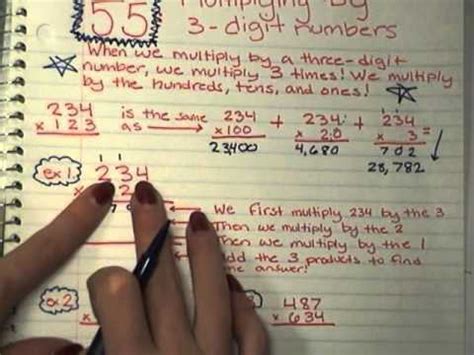 55 Multiplying by
3-digit numbers
When we multiply by a three-digit
number, we multiply 3 times! We multiply
by the hundreds, tens, and ones!
234 is the same 234 + 234 + 234
x 123 as → x100 x 20 x 3
23400 4,680 702
28,782
ex 1. 234
We first multiply 234 by the 3
Then we multiply by the 2
Then we multiply by the 1
Add the 3 products to find
the answer!
ex 2 487
x x 634